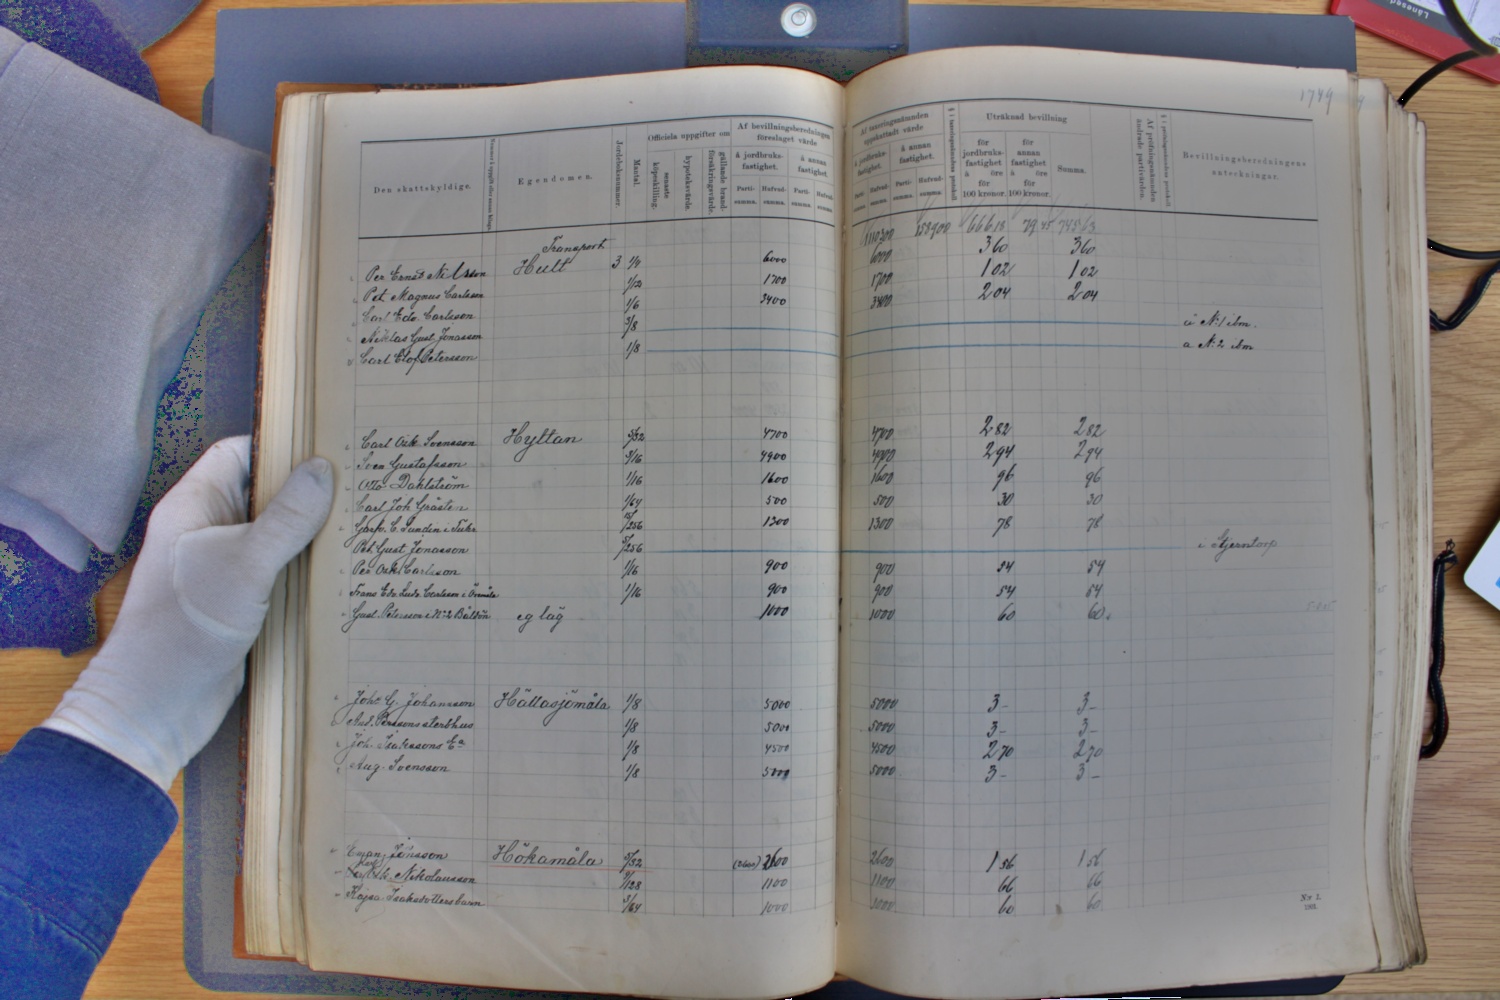 1749
Den skattskyldige.
Egendomen.
Jordeboksnummer.
Mantal.
Officiela uppgifter om
senaste köpeskilling.
hypoteksvärde.
gällande brandförsäkringsvärde.
Af bevillningsberedningen föreslaget värde
å jordbruksfastighet.
å annan fastighet.
Partisumma.
Hufvudsumma.
Partisumma.
Hufvudsumma.
Af taxeringsnämnden uppskattadt värde
å jordbruksfastighet.
å annan fastighet.
Uträknad bevillning
för jordbruksfastighet à öre för 100 kronor.
för annan fastighet à öre för 100 kronor.
Summa.
Af pröfningsnämnden ändrade partivärden.
Bevillningsberedningens anteckningar.
Transport 1110300 158900 666 18 79 45 745 63
Per Ernst Nilsson Hult 3 1/4 6000 6000 3 60 3 60
Pet. Magnus Carlsson 1/12 1700 1700 1 02 1 02
Carl Edv. Carlsson 1/6 3400 3400 2 04 2 04
Niklas Gust. Jonasson 3/8 å N:1 ibm.
Carl Elof Petersson 1/8 a N:2 ibm
Carl Osk. Svensson Hyltan 5/32 4700 4700 2 82 2 82
Sven Gustafsson 3/16 4900 4900 2 94 2 94
Otto Dahlström 1/16 1600 1600 96 96
Carl Joh Gråsten 1/64 500 500 30 30
Garfv. C. Lundin i 15/256 1300 1300 78 78
Pet. Gust Jonasson 5/256 i Stjerntorp
Per Osk. Carlsson 1/16 900 900 54 54
Frans Edv. Ludv. Carlsson i 1/16 900 900 54 54
Gust. Petersson i N:2 eg läg 1000 1000 60 60
Joh. G. Johansson Hättasjömåla 1/8 5000 5000 3 – 3 –
And. Perssons sterbhus 1/8 5000 5000 3 – 3 –
Joh. Isakssons Ea 1/8 4500 4500 2 70 2 70
Aug. Svensson 1/8 5000 5000 3 – 3 –
Eman. Jönsson Hökamåla 5/32 (2600) 2600 2600 1 56 1 56
Nikolausson 9/128 1100 1100 66 66
Kajsa Isaksdotters barn 3/64 1000 1000 60 60
N:r 2.
1901.